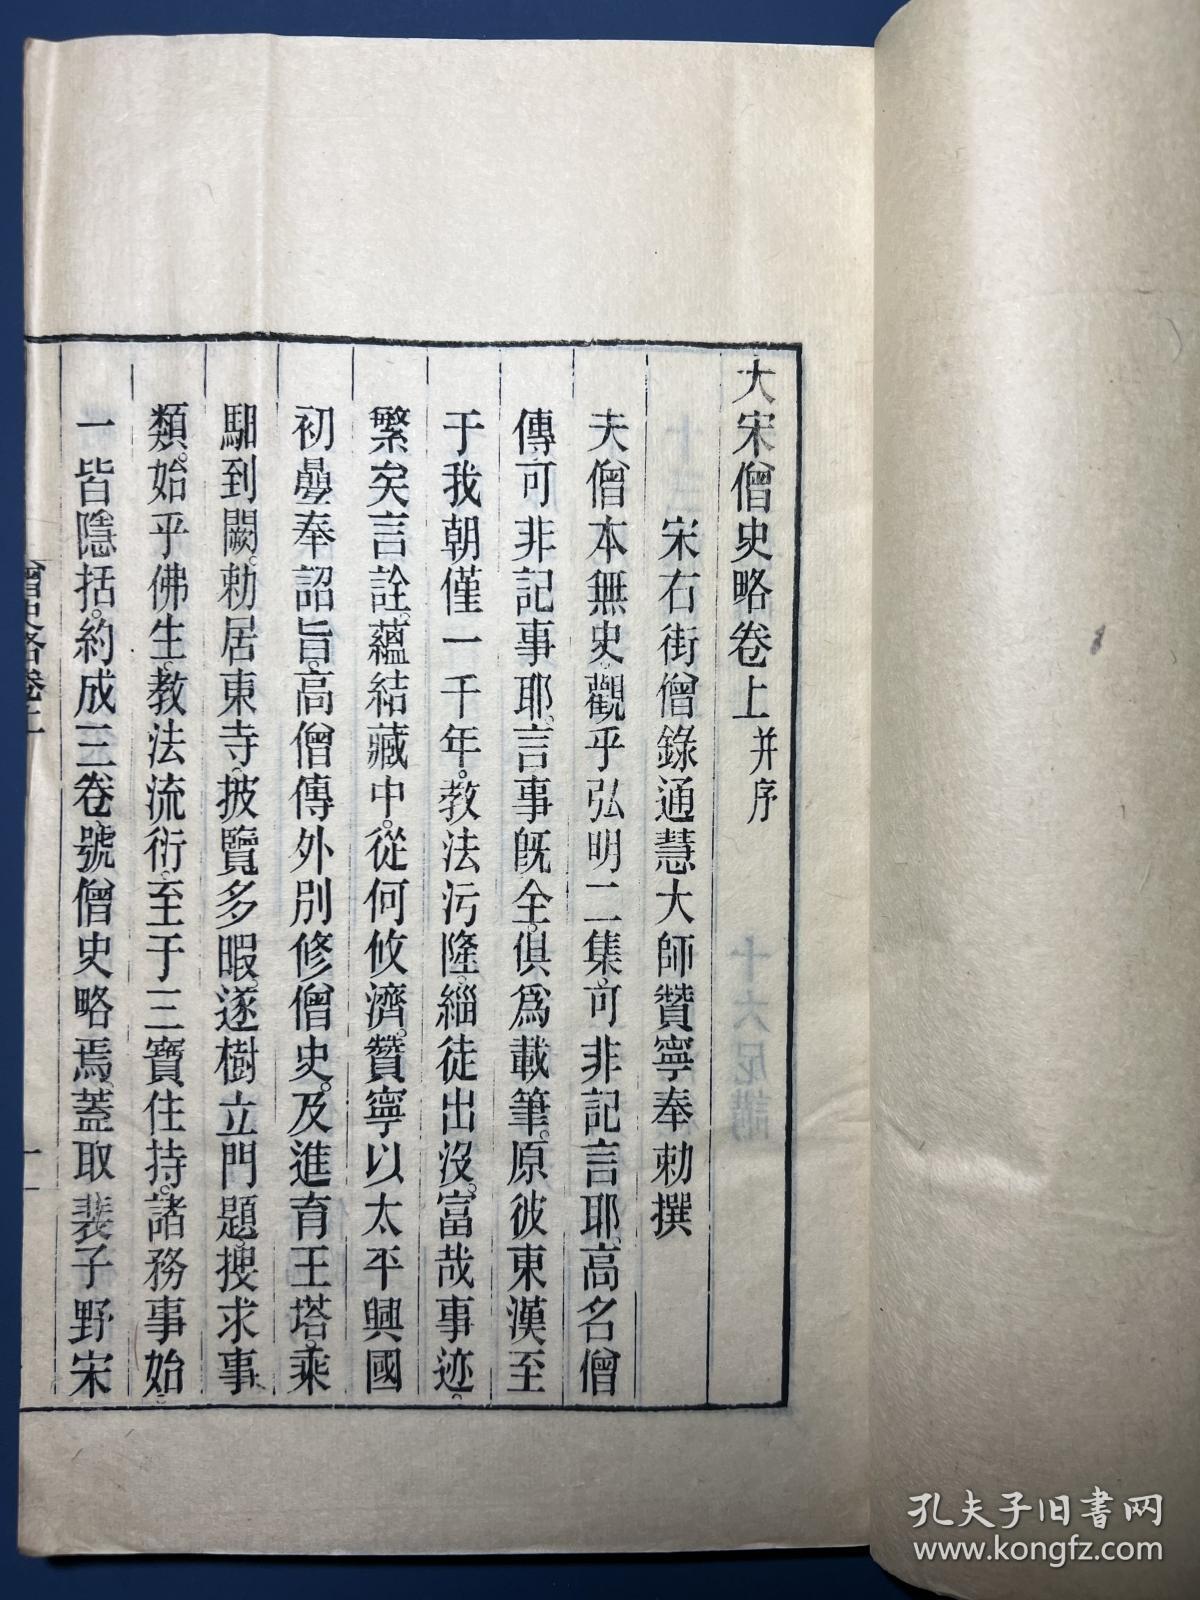 大宋僧史略卷上并序
宋右街僧錄通慧大師贊寧奉勅撰
夫僧本無史。觀乎弘明二集。可非記言耶。高名僧
傳。可非記事耶。言事既全。俱爲載筆。原彼東漢至
于我朝僅一千年。教法污隆。緇徒出沒。富哉事迹。
繁矣言詮。蘊結藏中。從何攸濟。贊寧以太平興國
初疊奉詔旨。高僧傳外別修僧史。及進育王塔。乘
馹到闕。勅居東寺。披覽多暇。遂樹立門題。搜求事
類。始乎佛生。教法流衍。至于三寶住持。諸務事始。
一皆隱括。約成三卷。號僧史略焉。蓋取裴子野宋
僧史略卷上
一
十六尼講
孔夫子旧书网
www.kongfz.com